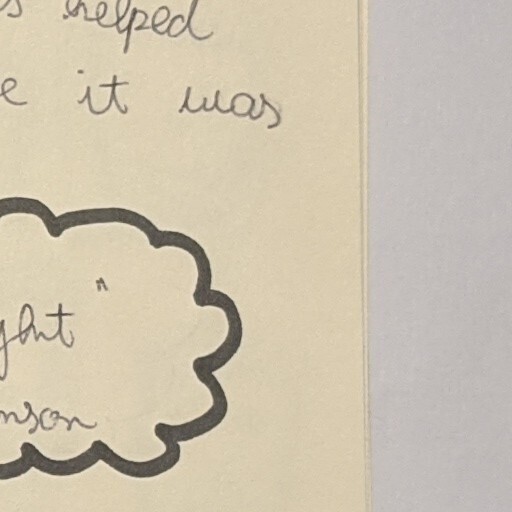 s helped
e it was
"
ght
nson